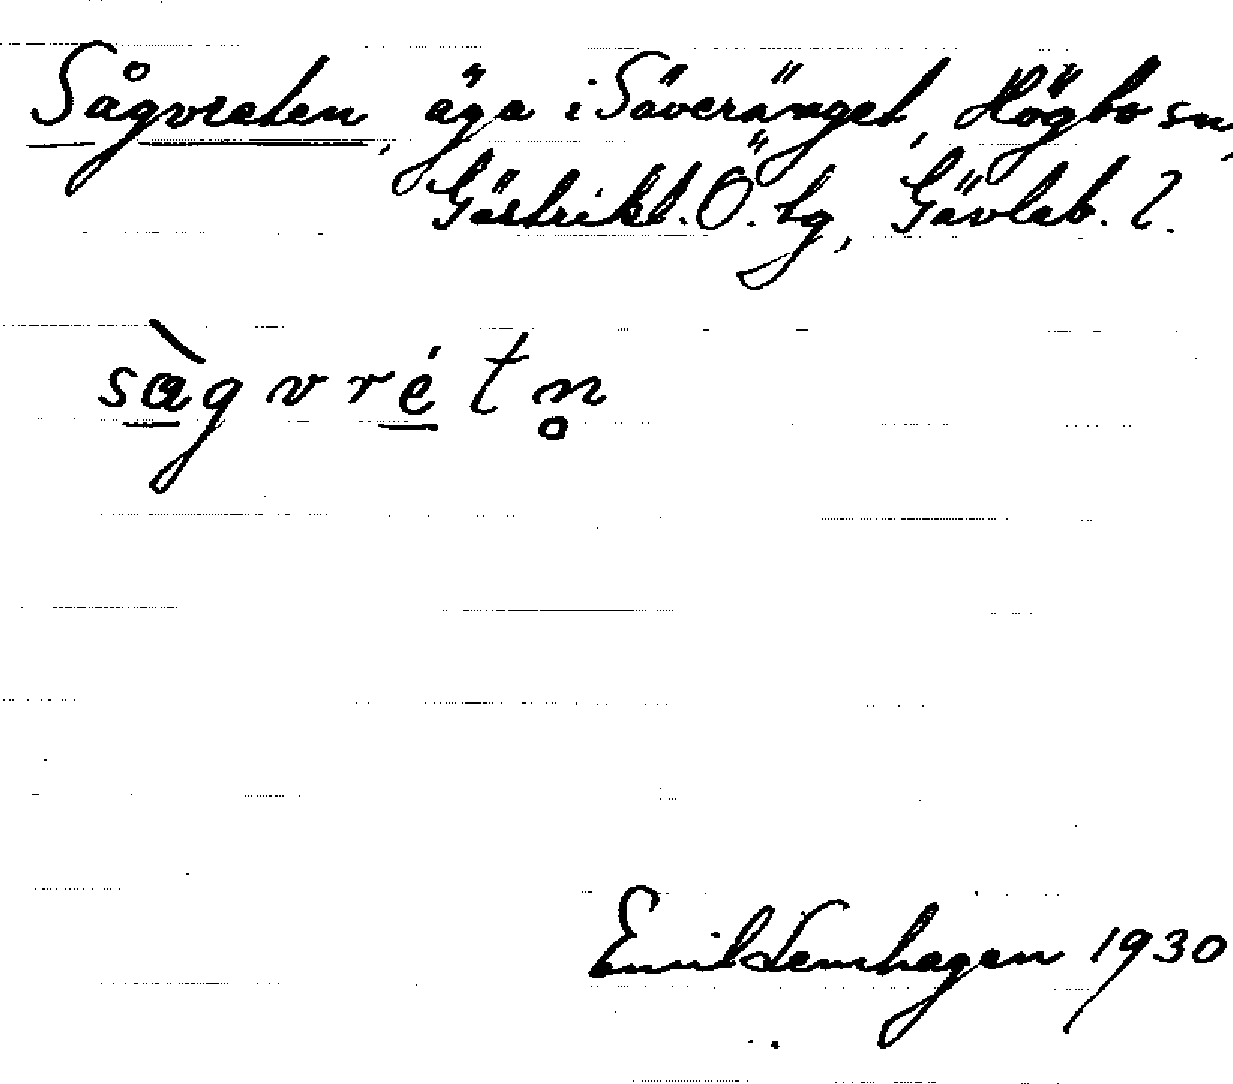 Sågvreten, äga i Säveränget, Högbo sn,
Gästrikl. Ö. tg, Gävleb. l.
sàgvrétn̥
Emil Lemhagen 1930